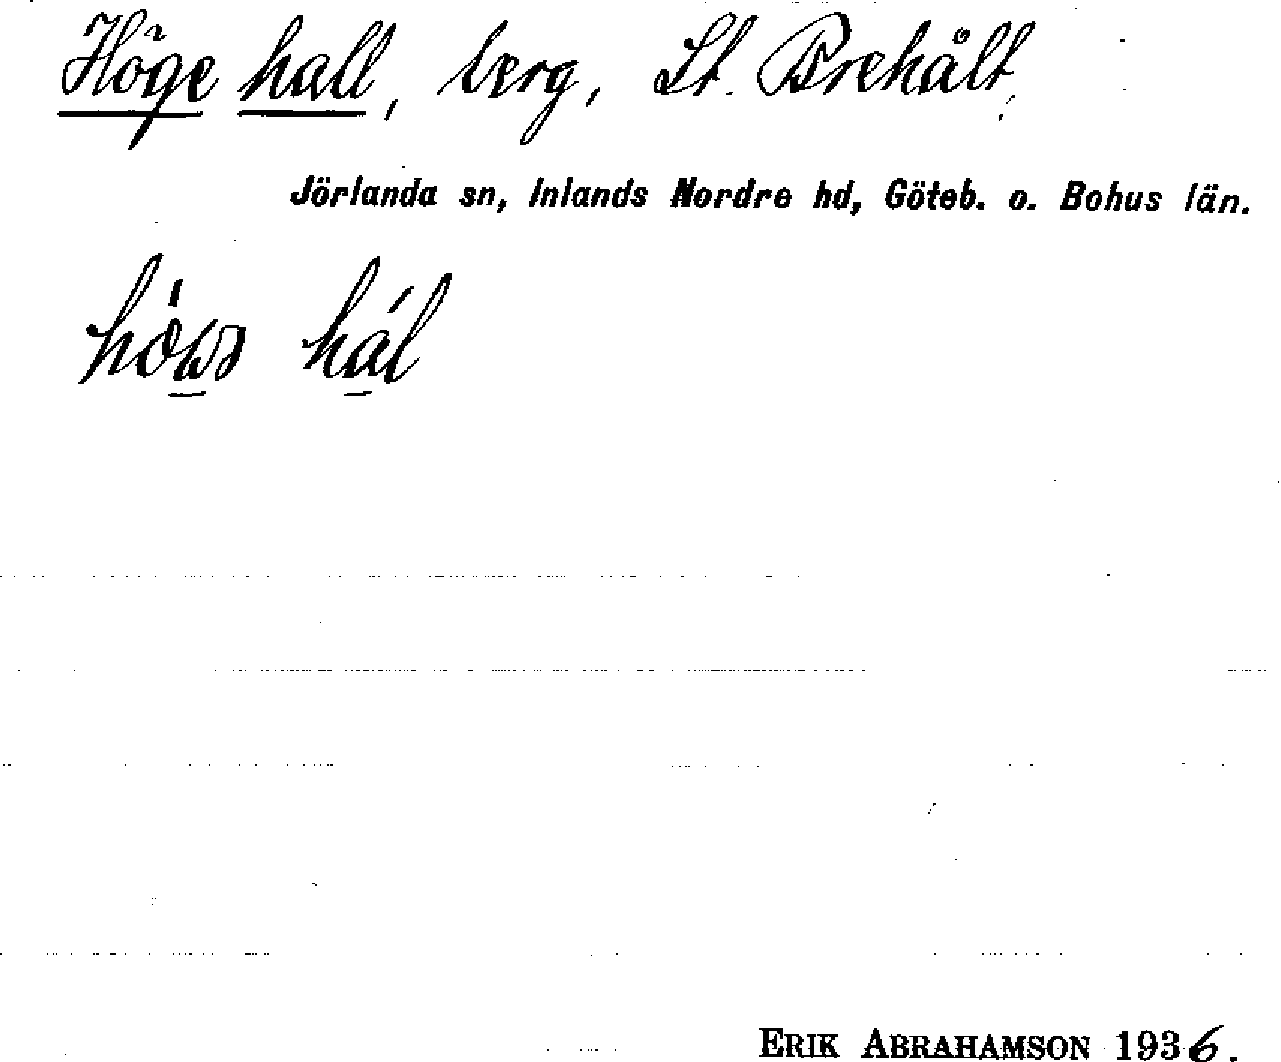 Höge hall, berg, St. Brehålt.
Jörlanda sn, Inlands Nordre hd, Göteb. o. Bohus län.
hál
ERIK ABRAHAMSON 1936.